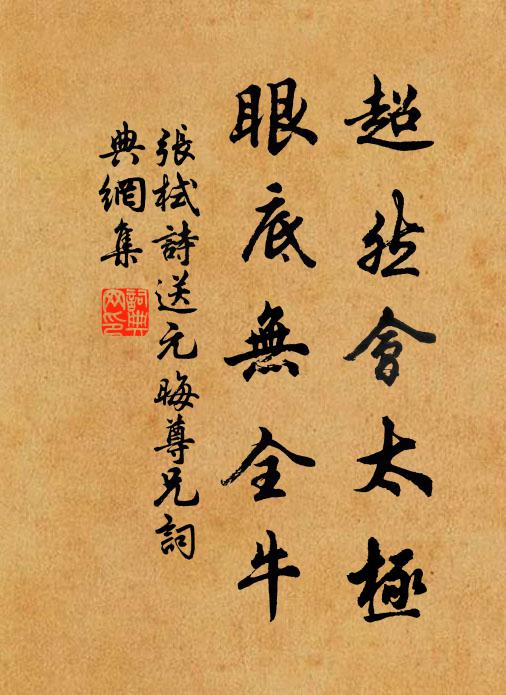 超然會太極
眼底無全牛
張栻詩送元晦尊兄詞
典網集
詞典
网印